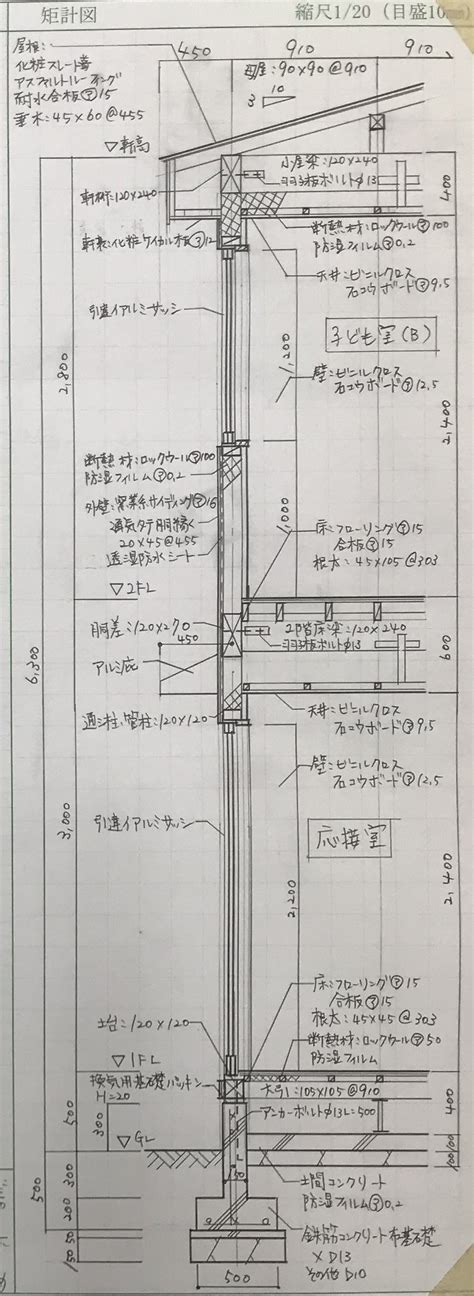 矩計図
縮尺1/20 (目盛10
屋根:
化粧スレート葺
アスファルトルーフィング
耐水合板㋐15
垂木:45×60@455
450
910
910
母屋:90×90@910
10
3
▽軒高
小屋梁:120×240
羽子板ボルトφ13
軒桁:120×240
400
軒裏:化粧ケイカル板㋐12
断熱材:ロックウール㋐100
防湿フィルム㋐0.2
天井:ビニルクロス
石コウボード㋐9.5
引違イアルミサッシ
子ども室(B)
1,200
壁:ビニルクロス
石コウボード㋐12.5
2,800
2,400
断熱材:ロックウール㋐100
防湿フィルム㋐0.2
外壁:窯業系サイディング㋐16
通気タテ胴縁
20×45@455
透湿防水シート
1,000
床:フローリング㋐15
合板㋐15
根太:45×105@303
▽2FL
胴差:120×270
450
アルミ庇
2階床梁:120×240
羽子板ボルトφ13
600
6,300
通シ柱、管柱:120×120
天井:ビニルクロス
石コウボード㋐9.5
壁:ビニルクロス
石コウボード㋐12.5
引違イアルミサッシ
応接室
3,000
2,200
2,400
床:フローリング㋐15
合板㋐15
根太:45×45@303
断熱材:ロックウール㋐50
防湿フィルム
土台:120×120
▽1FL
換気用基礎パッキン
H=20
大引:105×105@910
アンカーボルトφ13L=500
500
300
400
▽GL
100
100
150
土間コンクリート
防湿フィルム㋐0.2
500
300
200
鉄筋コンクリート布基礎
D13
その他D10
50
50
500